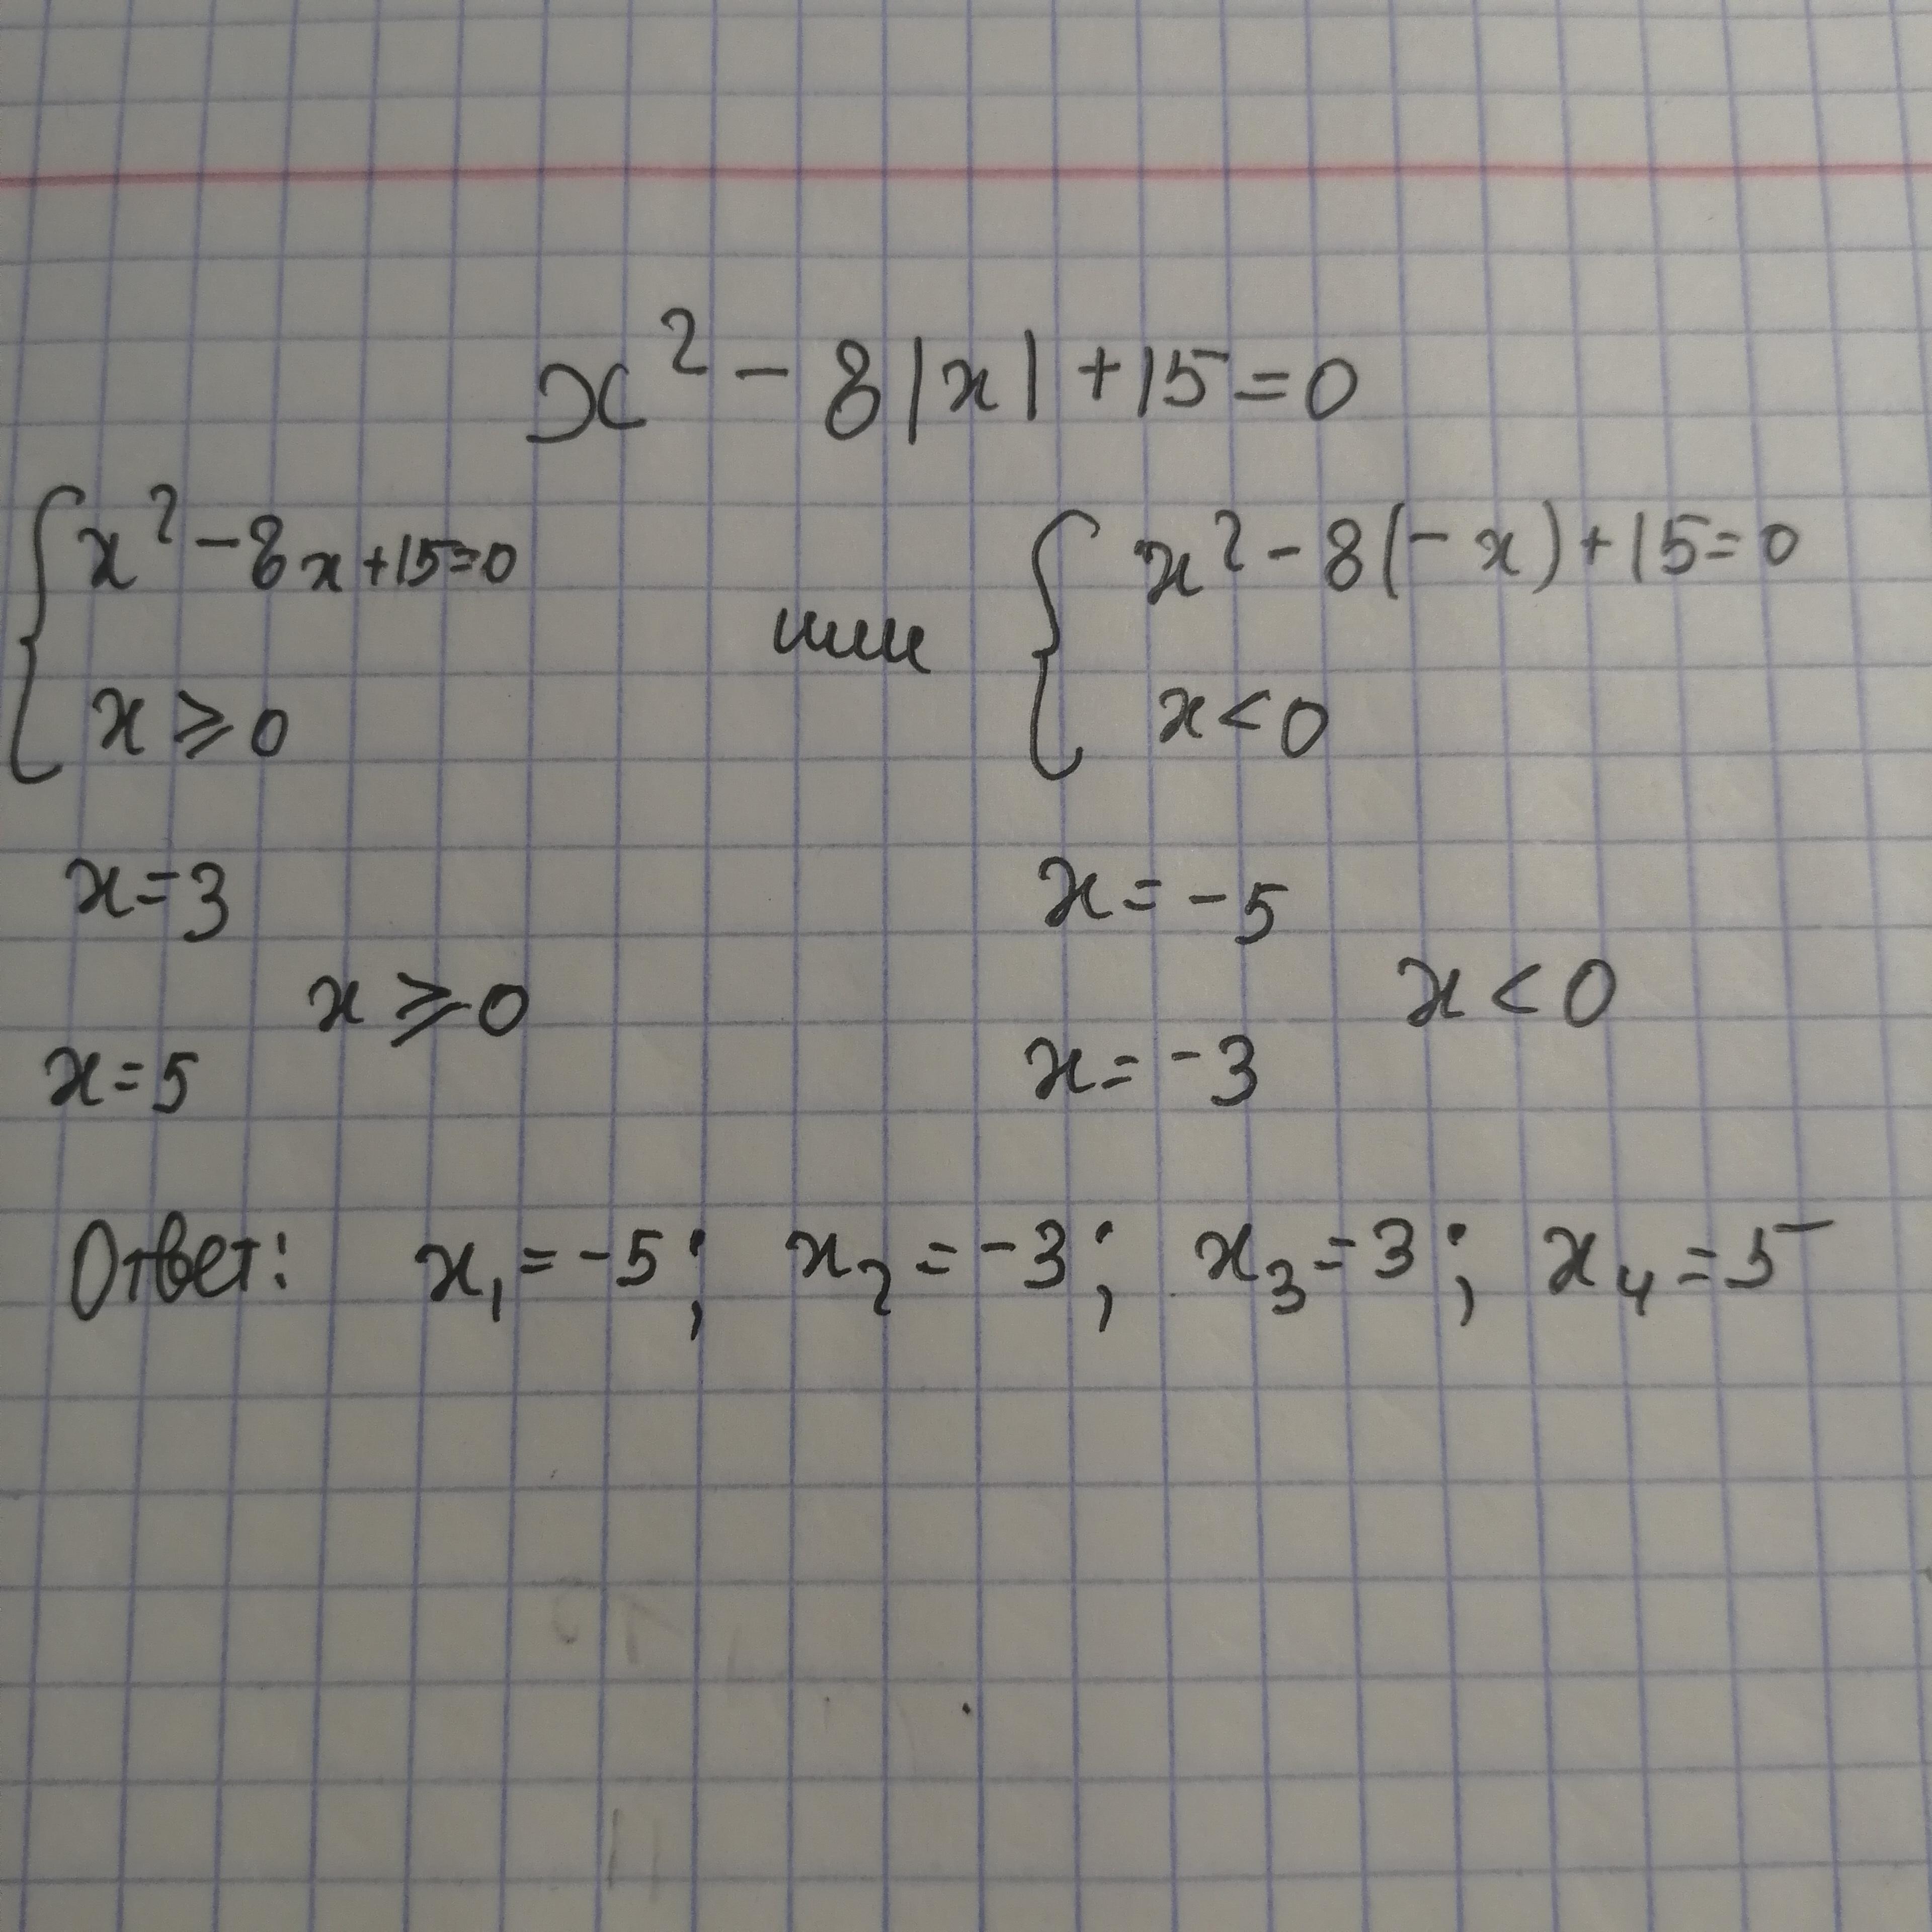 x² - 8|x| + 15 = 0
{ x² - 8x + 15 = 0 или { x² - 8(-x) + 15 = 0
x ⩾ 0 x < 0
x = 3 x = -5
x ⩾ 0 x < 0
x = 5 x = -3
Ответ: x₁ = -5; x₂ = -3; x₃ = 3; x₄ = 5